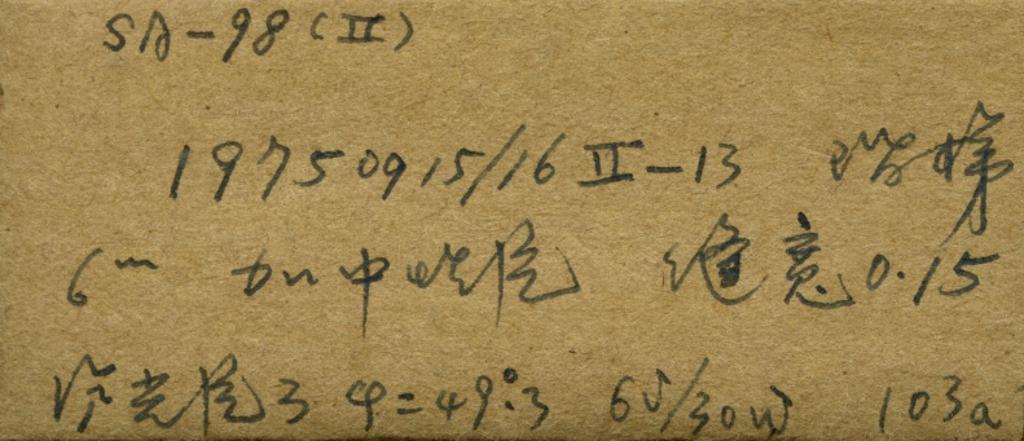 SA-98(II)
19750915/16 II-13 阶梯
6ᵐ 加中性片 缝宽0.15
光片3 φ=49°.3 6V/30W 103a